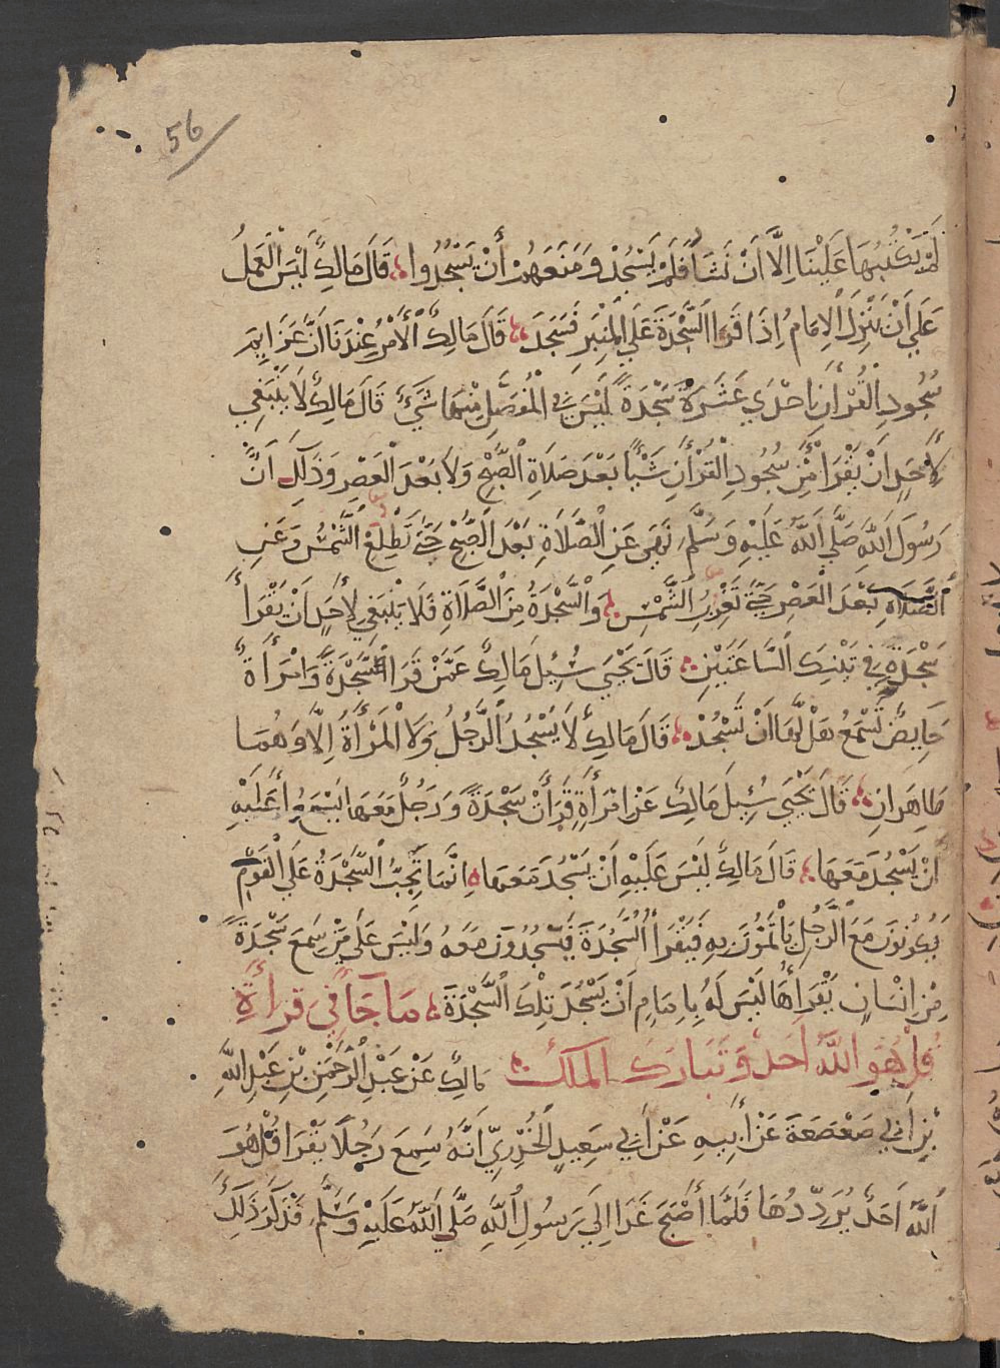 56
لَمْ يَكْتُبْهَا عَلَيْنَا اِلَّا اَنْ نَشَأَ فَلَمْ يَسْجُدْ وَمَنَعَهُمْ أَنْ يَسْجُدُوا قَالَ مَالِكٌ لَيْسَ الْعَمَلُ
عَلَي أَنْ يَنْزِلَ الْاِمَامُ اِذَا قَرَا السَّجْدَةَ عَلَي الْمِنْبَرِ فَسَجَدَ قَالَ مَالِكٌ الْأَمْرُ عِنْدَنَا اَنَّ عَزَايِمَ
سُجُودِ الْقُرْأَنِ اِحْدَي عَشَرَةَ سَجْدَةً لَيْسَ فِي الْمُفَصَّلِ مِنْهَا شَيْءٌ قَالَ مَالِكٌ لَا يَنْبَغِي
لِأَحَدٍ اَنْ يَقْرَأَ مِنْ سُجُودِ الْقُرْأَنِ شَيْأً بَعْدَ صَلَاةِ الصُّبْحِ وَلَا بَعْدَ الْعَصْرِ وَذَالِكَ اَنَّ
رَسُولَ اللَّهِ صَلَّي اللَّهُ عَلَيْهِ وَسَلَّمَ نَهَي عَنِ الْصَّلَاةِ بَعْدَ الصُّبْحِ حَتَّى تَطْلُعَ الشَّمْسُ وَعَنِ
الصَّلَاةِ بَعْدَ الْعَصْرِ حَتَّى تَغْرُبَ الشَّمْسُ وَالْسَّجْدَةُ مِنَ الْصَّلَاةِ فَلَا يَنْبَغِي لِأَحَدٍ اَنْ يَقْرَأَ
سَجْدَةً فِي تَيْنِكَ السَّاعَتَيْنِ قَالَ يَحْيَي سُئِيلَ مَالِكٌ عَمَّنْ قَرَأَ سَجْدَةً وَامْرَأَةٌ
حَايِضٌ تَسْمَعُ هَلْ لَهَا اَنْ تَسْجُدْ قَالَ مَالِكٌ لَا يَسْجُدُ الرَّجُلُ وَلَا الْمَرْأَةُ اِلَّا وَهُمَا
طَاهِرَانِ قَالَ يَحْيَي سُئِيلَ مَالِكٌ عَنْ امْرَأَةٍ قَرَأَتْ سَجْدَةً وَرَجُلٌ مَعَهَا يَسْمَعُ أَعَلَيْهِ
اَنْ يَسْجُدَ مَعَهَا قَالَ مَالِكٌ لَيْسَ عَلَيْهِ اَنْ يَسْجُدَ مَعَهَا اِنَّمَا تَجِبُ السَّجْدَةُ عَلَي الْقَوْمِ
يَكُونُونَ مَعَ الرَّجُلِ يَأْتَمُّونَ بِهِ فَيَقْرَأُ السَّجْدَةَ فَيَسْجُدُونَ مَعَهُ وَلَيْسَ عَلَي مَنْ سَمِعَ سَجْدَةً
مِنْ اِنْسَانٍ يَقْرَأُهَا لَيْسَ لَهُ بِاِمَامٍ اَنْ يَسْجُدَ تِلْكَ الْسَّجْدَةَ مَا جَاَ فِي قِرَأَةِ
قُلْ هُوَ اللَّهُ اَحَدٌ وَتَبَارَكَ الملك مَالِكٌ عَنْ عَبْدِ الْرَّحْمَنِ بْنِ عَبْدِ اللَّهِ
بْنِ أَبِي صَعْصَعَةَ عَنْ أَبِيهِ عَنْ أَبِي سَعِيدٍ الْخُدْرِيِّ اَنَّهُ سَمِعَ رَجُلًا يَقْرَا قُلْ هُوَ
اللَّهُ اَحَدٌ يُرَدِّدُهَا فَلَمَّا أَصْبَحَ غَدَا اِلَي رَسُولِ اللَّهِ صَلَّي اللَّهُ عَلَيْهِ وَسَلَّمَ فَذَكَرَ ذَلِكَ